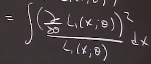 = ∫ (∂/∂θ L₁(x;θ))² / L₁(x;θ) dx